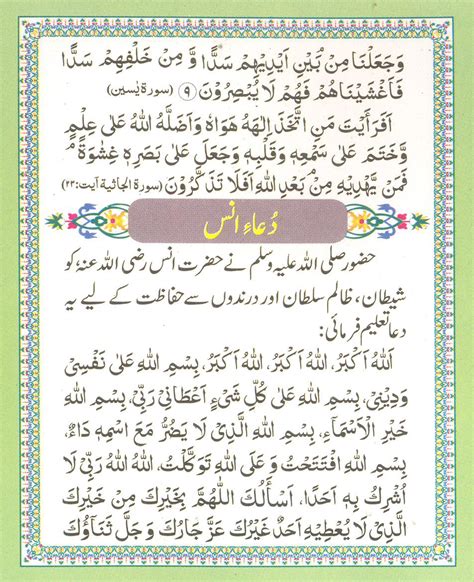 وَجَعَلْنَا مِنْۢ بَيْنِ اَيْدِيْهِمْ سَدًّا وَّ مِنْ خَلْفِهِمْ سَدًّا
فَاَغْشَيْنَاهُمْ فَهُمْ لَا يُبْصِرُوْنَ ۹ (سورة يٰسين)
اَفَرَأَيْتَ مَنِ اتَّخَذَ اِلٰهَهٗ هَوَاهُ وَاَضَلَّهُ اللّٰهُ عَلٰى عِلْمٍ
وَّخَتَمَ عَلٰى سَمْعِهٖ وَقَلْبِهٖ وَجَعَلَ عَلٰى بَصَرِهٖ غِشٰوَةً
فَمَنْ يَّهْدِيْهِ مِنْۢ بَعْدِ اللّٰهِ اَفَلَا تَذَكَّرُوْنَ (سورة الجاثية آيت:۲۳)
دُعاءِ انس
حضور صلی اللہ علیہ وسلم نے حضرت انس رضی اللہ عنہ، کو
شیطان، ظالم سلطان اور درندوں سے حفاظت کے لیے یہ
دعا تعلیم فرمائی:
اَللّٰهُ اَكْبَرُ، اَللّٰهُ اَكْبَرُ، اَللّٰهُ اَكْبَرُ، بِسْمِ اللّٰهِ عَلٰى نَفْسِىْ
وَدِيْنِىْ، بِسْمِ اللّٰهِ عَلٰى كُلِّ شَىْءٍ اَعْطَانِىْ رَبِّىْ، بِسْمِ اللّٰهِ
خَيْرِ الْاَسْمَاءِ، بِسْمِ اللّٰهِ الَّذِىْ لَا يَضُرُّ مَعَ اسْمِهٖ دَاءٌ،
بِسْمِ اللّٰهِ افْتَتَحْتُ وَ عَلَى اللّٰهِ تَوَكَّلْتُ، اَللّٰهُ اَللّٰهُ رَبِّىْ لَا
اُشْرِكُ بِهٖ اَحَدًا، اَسْأَلُكَ اللّٰهُمَّ بِخَيْرِكَ مِنْ خَيْرِكَ
الَّذِىْ لَا يُعْطِيْهِ اَحَدٌ غَيْرُكَ عَزَّ جَارُكَ وَ جَلَّ ثَنَاؤُكَ